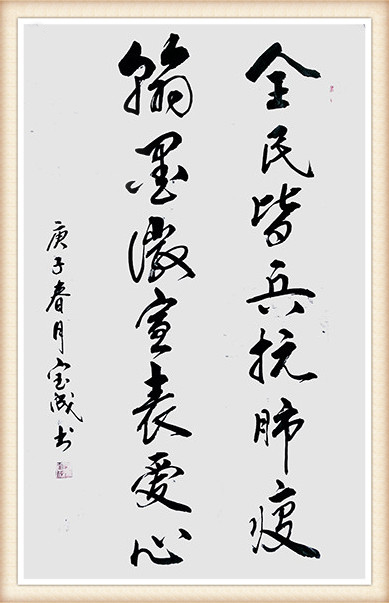 全民皆兵抗肺疫
翰墨微宣表爱心
庚子春月宝成书